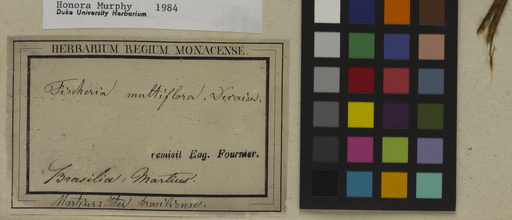 Honora Murphy 1984
Duke University Herbarium
HERBARIUM REGIUM MONACENSE.
Fischeria multiflora. Decaisn.
remisit Eug. Fournier.
Brasilia: Martius.
Martius: Iter brasiliense.